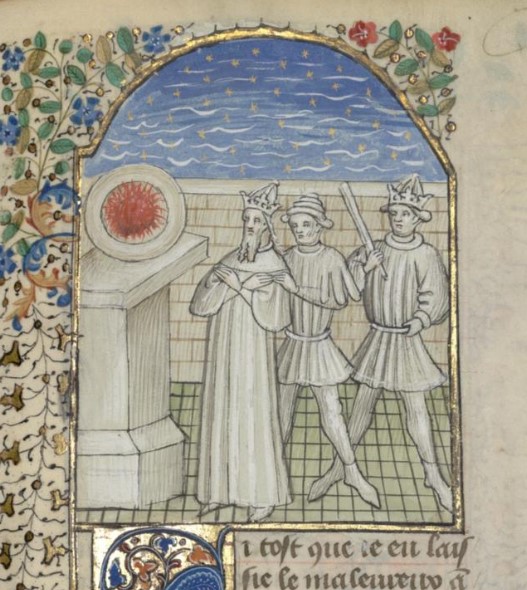 i tost que ie eu lais
sie le maleureux